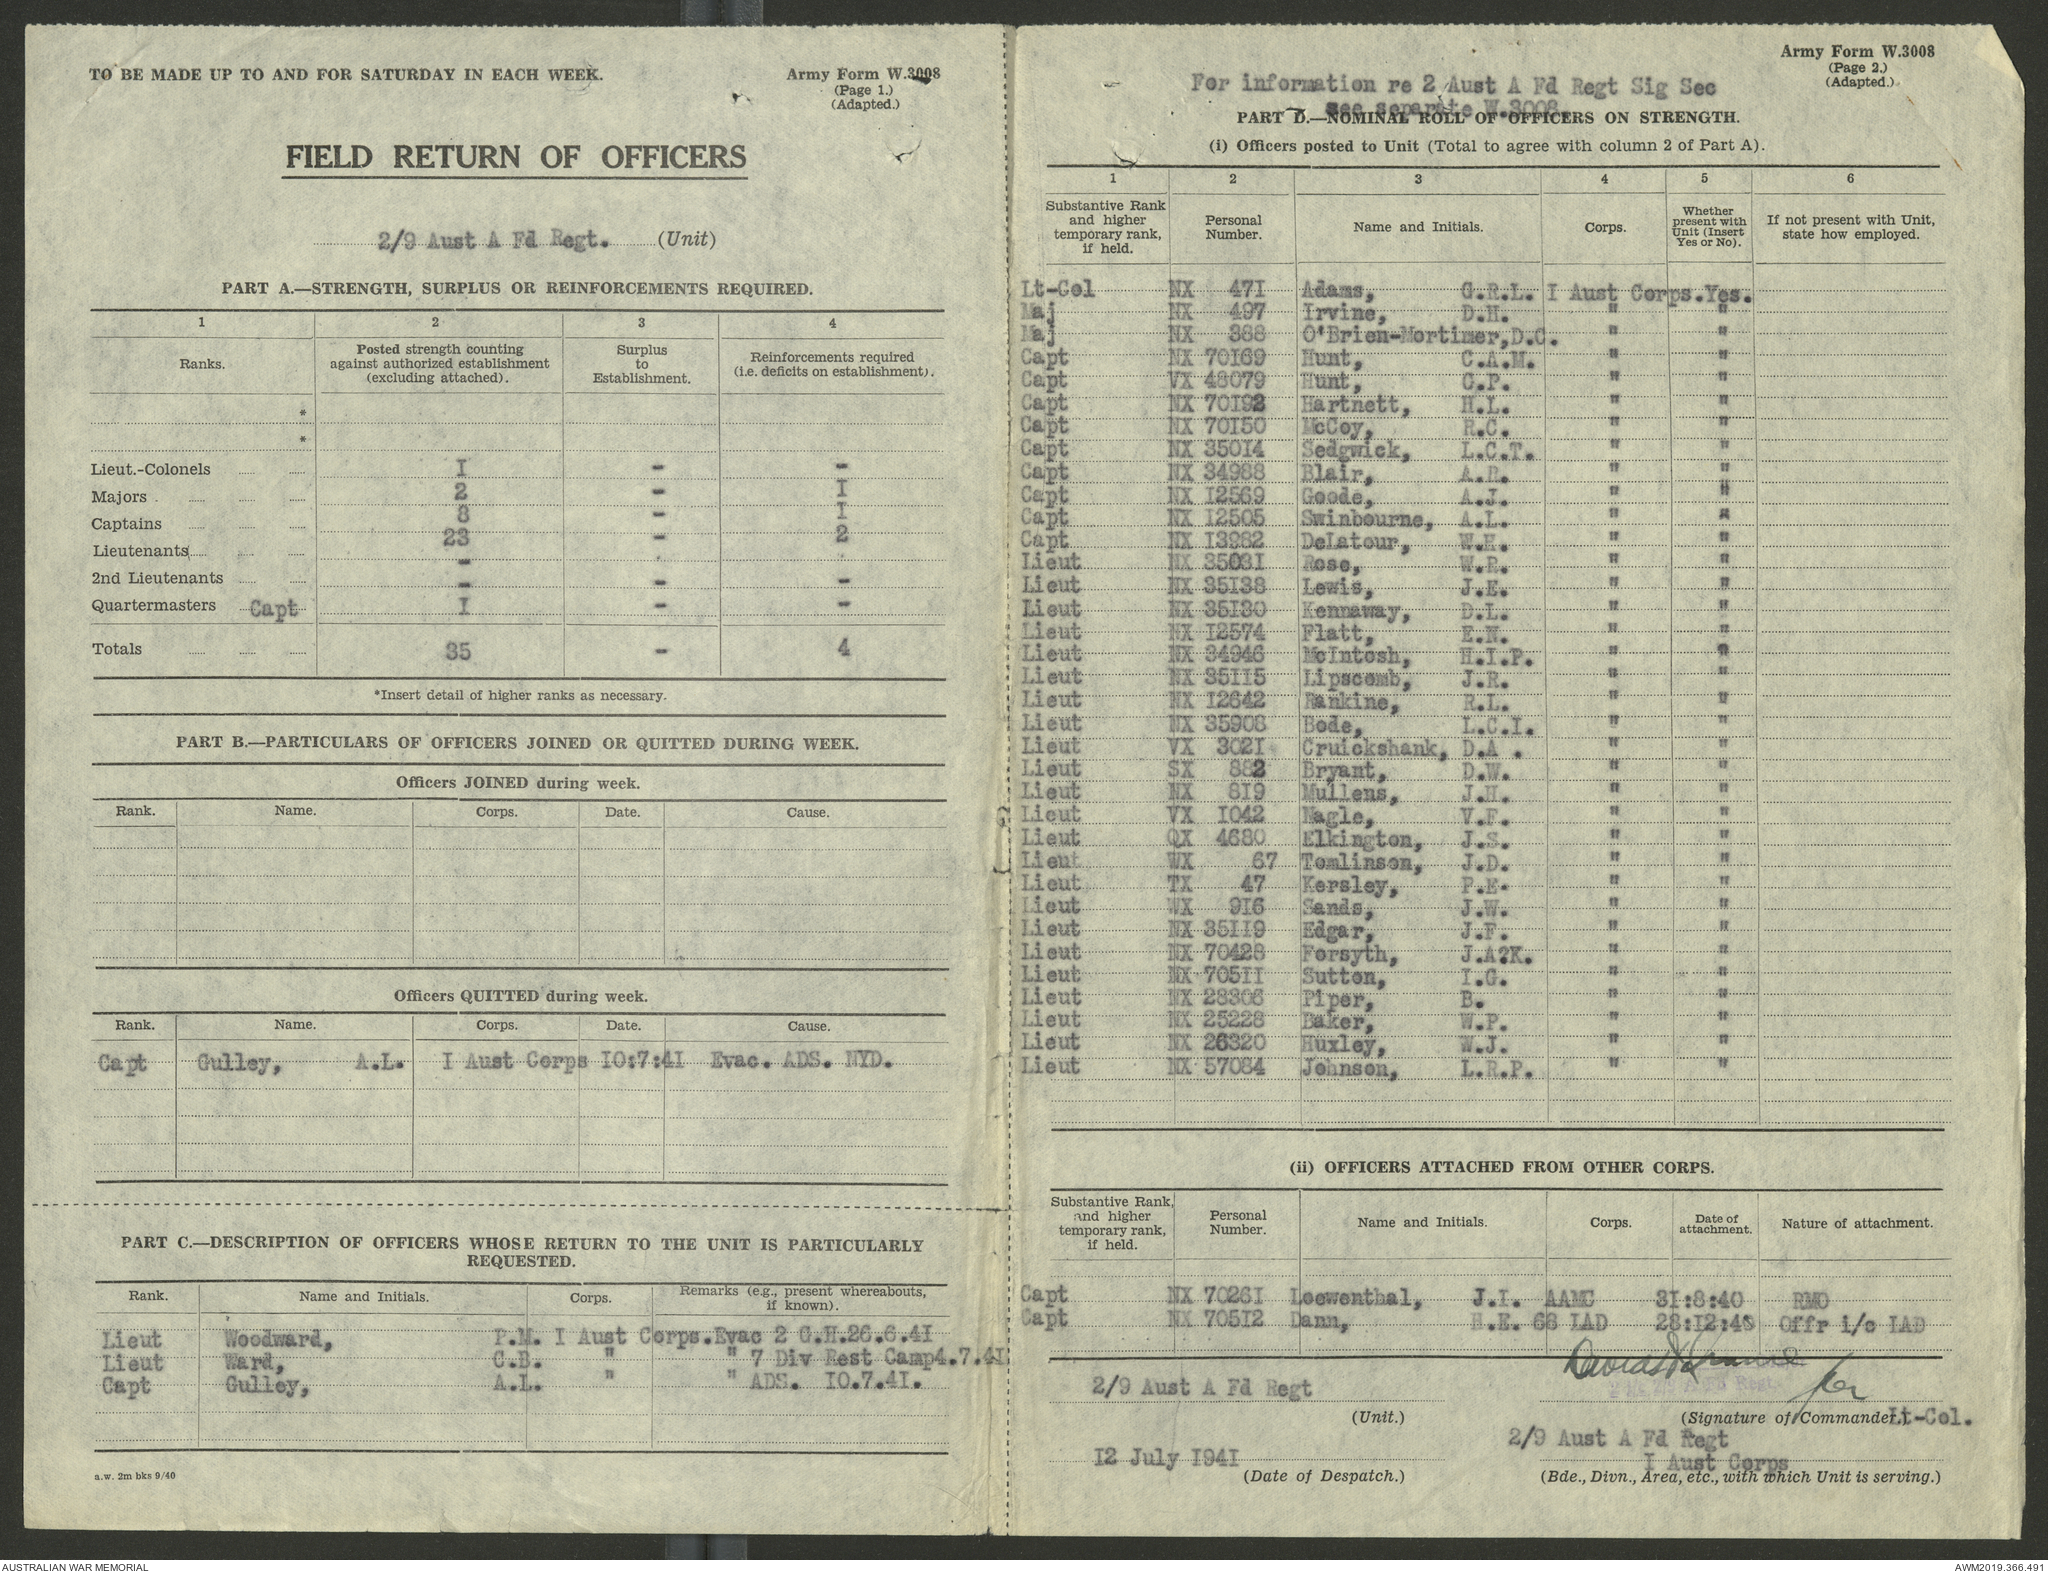 TO BE MADE UP TO AND FOR SATURDAY IN EACH WEEK.
Army Form W.3008
(Page 1.)
(Adapted.)
FIELD RETURN OF OFFICERS
2/9 Aust A Fd Regt. (Unit)
PART A.—STRENGTH, SURPLUS OR REINFORCEMENTS REQUIRED.
1 2 3 4
Ranks. Posted strength counting against authorized establishment (excluding attached). Surplus to Establishment. Reinforcements required (i.e. deficits on establishment).
*
*
Lieut.-Colonels I - -
Majors 2 - I
Captains 8 - I
Lieutenants 23 - 2
2nd Lieutenants - - -
Quartermasters Capt I - -
Totals 35 - 4
*Insert detail of higher ranks as necessary.
PART B.—PARTICULARS OF OFFICERS JOINED OR QUITTED DURING WEEK.
Officers JOINED during week.
Rank. Name. Corps. Date. Cause.
Officers QUITTED during week.
Rank. Name. Corps. Date. Cause.
Capt Gulley, A.L. I Aust Corps IO:7:4I Evac. ADS. NYD.
PART C.—DESCRIPTION OF OFFICERS WHOSE RETURN TO THE UNIT IS PARTICULARLY
REQUESTED.
Rank. Name and Initials. Corps. Remarks (e.g., present whereabouts, if known).
Lieut Woodward, P.M. I Aust Corps.Evac 2 G.H.26.6.4I
Lieut Ward, C.B. " " 7 Div Rest Camp4.7.4I
Capt Gulley, A.L. " " ADS. IO.7.4I.
a.w. 2m bks 9/40
Army Form W.3008
(Page 2.)
(Adapted.)
For information re 2 Aust A Fd Regt Sig Sec
see separate W.3008.
PART D.—NOMINAL ROLL OF OFFICERS ON STRENGTH.
(i) Officers posted to Unit (Total to agree with column 2 of Part A).
1 2 3 4 5 6
Substantive Rank and higher temporary rank, if held. Personal Number. Name and Initials. Corps. Whether present with Unit (Insert Yes or No). If not present with Unit, state how employed.
Lt-Col NX 47I Adams, G.R.L. I Aust Corps.Yes.
Maj NX 497 Irvine, D.H. " "
Maj NX 388 O'Brien-Mortimer,D.C. " "
Capt NX 70I69 Hunt, C.A.M. " "
Capt VX 48079 Hunt, G.P. " "
Capt NX 70I92 Hartnett, H.L. " "
Capt NX 70I50 McCoy, R.C. " "
Capt NX 350I4 Sedgwick, L.C.T. " "
Capt NX 34988 Blair, A.R. " "
Capt NX I2569 Goode, A.J. " "
Capt NX I2505 Swinbourne, A.L. " "
Capt NX I3982 DeLatour, W.H. " "
Lieut NX 3503I Rose, W.R. " "
Lieut NX 35I38 Lewis, J.E. " "
Lieut NX 35I30 Kennaway, D.L. " "
Lieut NX I2574 Flatt, E.N. " "
Lieut NX 34946 McIntosh, H.I.P. " "
Lieut NX 35II5 Lipscomb, J.R. " "
Lieut NX I2642 Rankine, R.L. " "
Lieut NX 35908 Bode, L.C.I. " "
Lieut VX 302I Cruickshank, D.A . " "
Lieut SX 882 Bryant, D.W. " "
Lieut NX 8I9 Mullens, J.H. " "
Lieut VX I042 Nagle, V.F. " "
Lieut QX 4680 Elkington, J.S. " "
Lieut WX 67 Tomlinson, J.D. " "
Lieut TX 47 Kersley, P.E. " "
Lieut WX 9I6 Sands, J.W. " "
Lieut NX 35II9 Edgar, J.F. " "
Lieut NX 70428 Forsyth, J.A?K. " "
Lieut NX 705II Sutton, I.G. " "
Lieut NX 28306 Piper, B. " "
Lieut NX 25228 Baker, W.P. " "
Lieut NX 26320 Huxley, W.J. " "
Lieut NX 57084 Johnson, L.R.P. " "
(ii) OFFICERS ATTACHED FROM OTHER CORPS.
Substantive Rank, and higher temporary rank, if held. Personal Number. Name and Initials. Corps. Date of attachment. Nature of attachment.
Capt NX 7026I Loewenthal, J.I. AAMC 3I:8:40 RMO
Capt NX 705I2 Dann, H.E. 68 LAD 28:I2:40 Offr i/c LAD
for
2/9 Aust A Fd Regt
(Unit.)
(Signature of Commander.) Lt-Col.
2/9 Aust A Fd Regt
I Aust Corps
I2 July I94I
(Date of Despatch.)
(Bde., Divn., Area, etc., with which Unit is serving.)
AUSTRALIAN WAR MEMORIAL
AWM2019.366.491